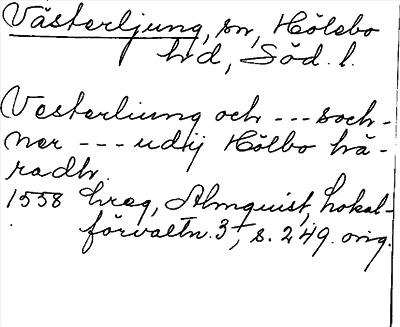 Västerljung, sn, Hölebo
hd, Söd. l.
Vesterliung och --- soch-
ner --- udij Hölbo hä-
radh.
1558 hreg, Almquist, Lokal-
förvaltn. 3, s. 249. orig.